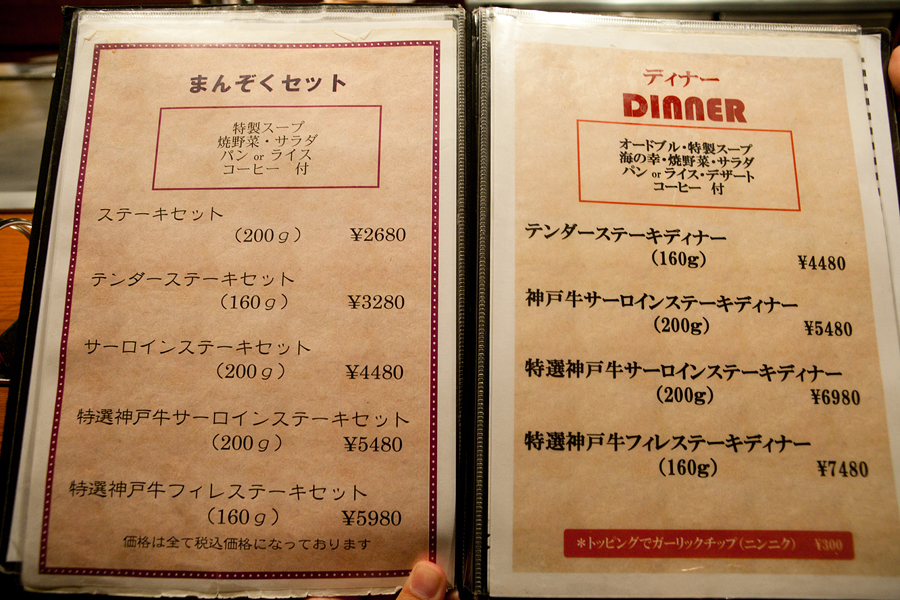 まんぞくセット
特製スープ
焼野菜・サラダ
パン or ライス
コーヒー 付
ステーキセット
(200g) ¥2680
テンダーステーキセット
(160g) ¥3280
サーロインステーキセット
(200g) ¥4480
特選神戸牛サーロインステーキセット
(200g) ¥5480
特選神戸牛フィレステーキセット
(160g) ¥5980
価格は全て税込価格になっております
ディナー
DINNER
オードブル・特製スープ
海の幸・焼野菜・サラダ
パン or ライス・デザート
コーヒー 付
テンダーステーキディナー
(160g) ¥4480
神戸牛サーロインステーキディナー
(200g) ¥5480
特選神戸牛サーロインステーキディナー
(200g) ¥6980
特選神戸牛フィレステーキディナー
(160g) ¥7480
*トッピングでガーリックチップ(ニンニク) ¥300